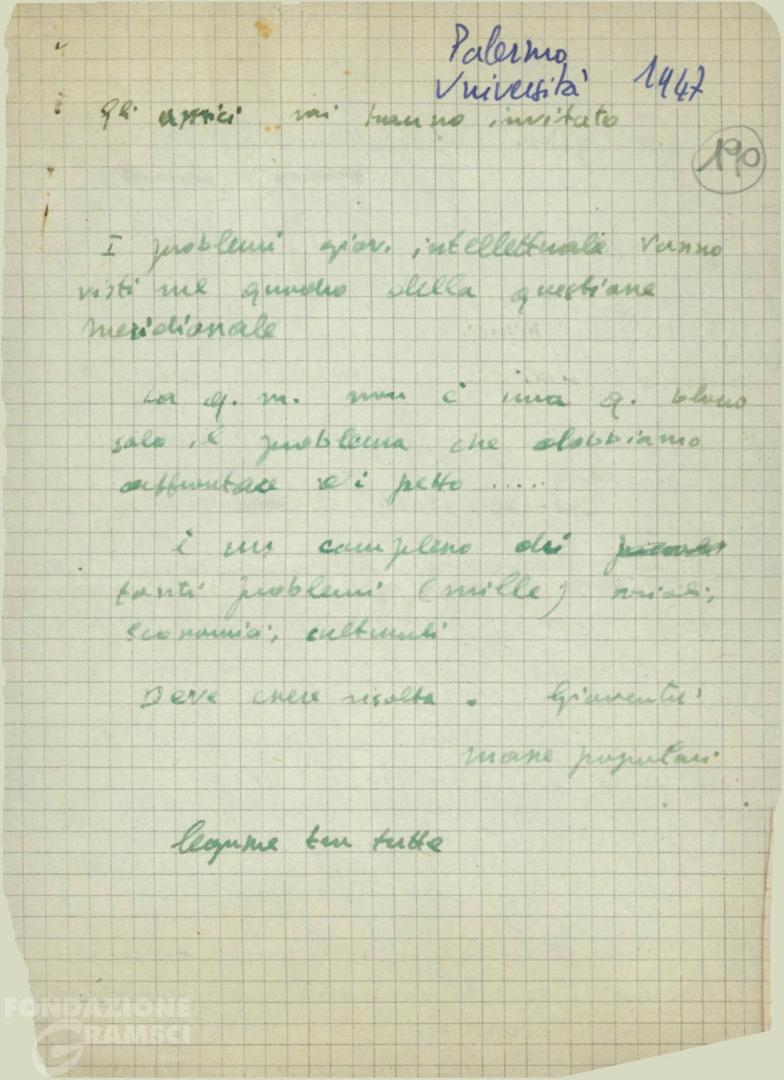 Palermo
Università 1947
Gli amici mi hanno invitato
190
I problemi giov. intellettuale vanno
visti nel quadro della questione
meridionale
La q. m. non è una q.
solo il problema che dobbiamo
affrontare di petto .....
è un complesso di
tanti problemi (mille) sociali,
economici, culturali
Deve essere risolta. Gioventù
masse popolari
legame tra tutte
FONDAZIONE
GRAMSCI
onlus